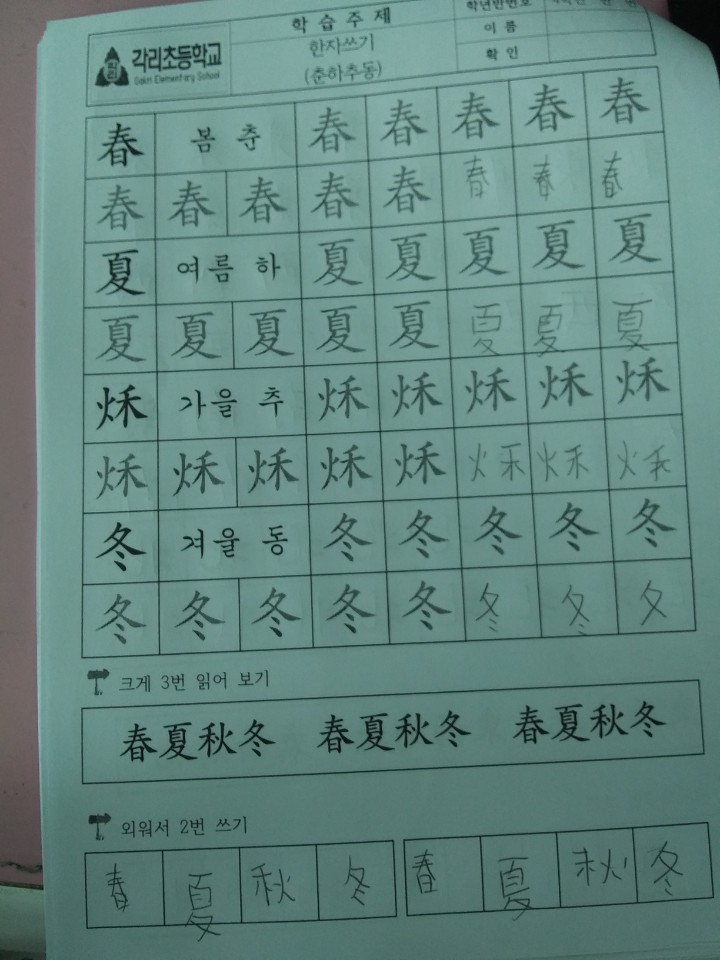 학습주제
학년반번호
각리초등학교
한자쓰기
이름
Gakri Elementary School
(춘하추동)
확인
春 봄 춘 春 春 春 春 春
春 春 春 春 春 春 春 春
夏 여름 하 夏 夏 夏 夏 夏
夏 夏 夏 夏 夏 夏 夏 夏
秌 가을 추 秌 秌 秌 秌 秌
秌 秌 秌 秌 秌 秌 秌 秌
冬 겨울 동 冬 冬 冬 冬 冬
冬 冬 冬 冬 冬 冬 冬 夂
크게 3번 읽어 보기
春夏秋冬 春夏秋冬 春夏秋冬
외워서 2번 쓰기
春 夏 秋 冬 春 夏 秋 冬